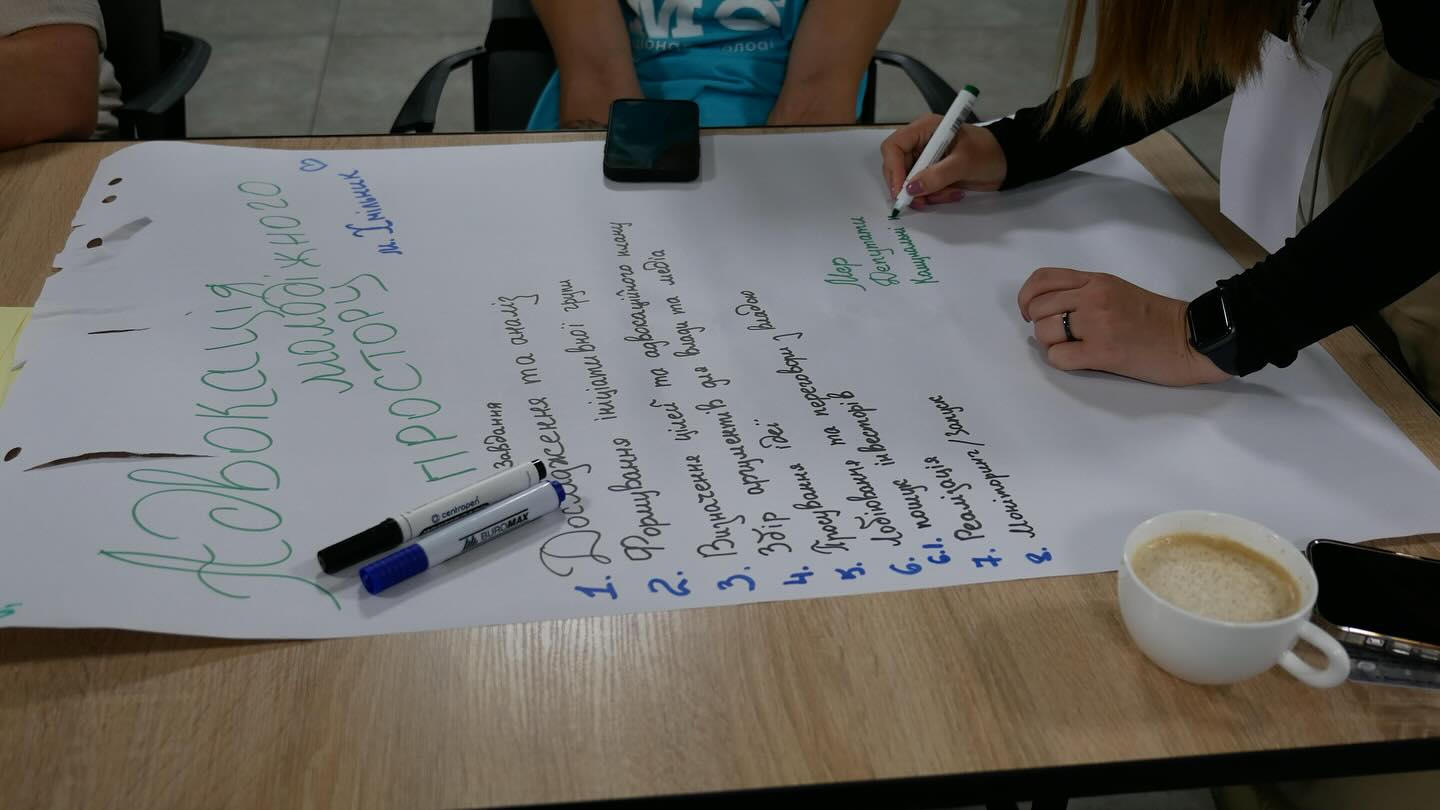 Адвокація
молодіжного
простору
м. Хмільник
Завдання
1. Дослідження та аналіз
2. Формування ініціативної групи
3. Визначення цілей та адвокаційного плану
4. Збір аргументів для влади та медіа
5. Просування ідеї
6. Лобіювання та переговори з владою
6.1. пошук інвесторів
7. Реалізація
8. Моніторинг/запуск
Мер
Депутати
centropen
BUROMAX